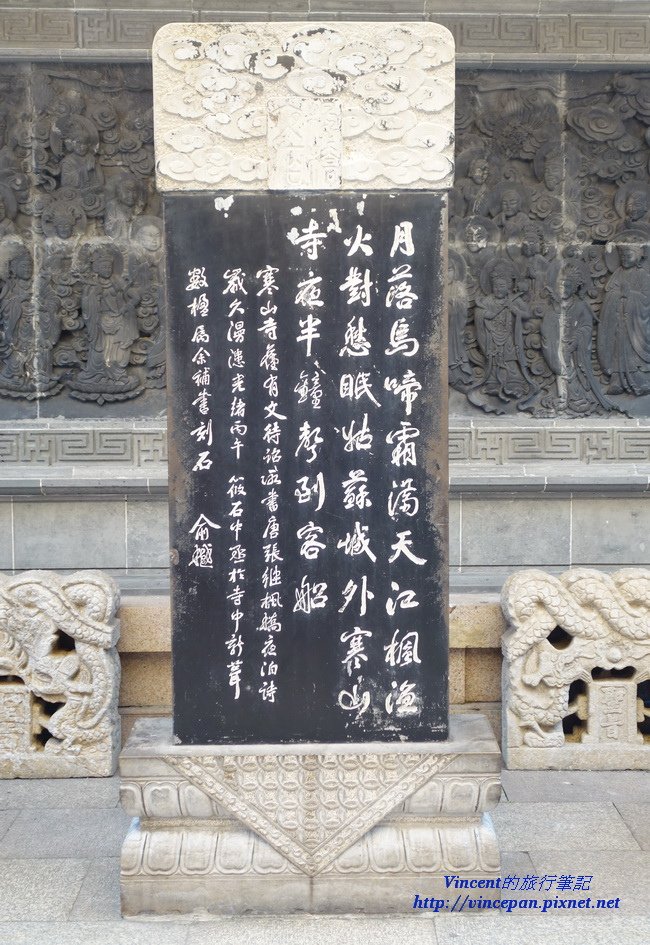 月落烏啼霜滿天江楓漁
火對愁眠姑蘇城外寒山
寺夜半鐘聲到客船
寒山寺舊有文待詔所書唐張繼楓橋夜泊詩
歲久漫漶光緒丙午筱石中丞於寺中新葺
數楹屬余補書刻石 俞樾
Vincent的旅行筆記
http://vincepan.pixnet.net